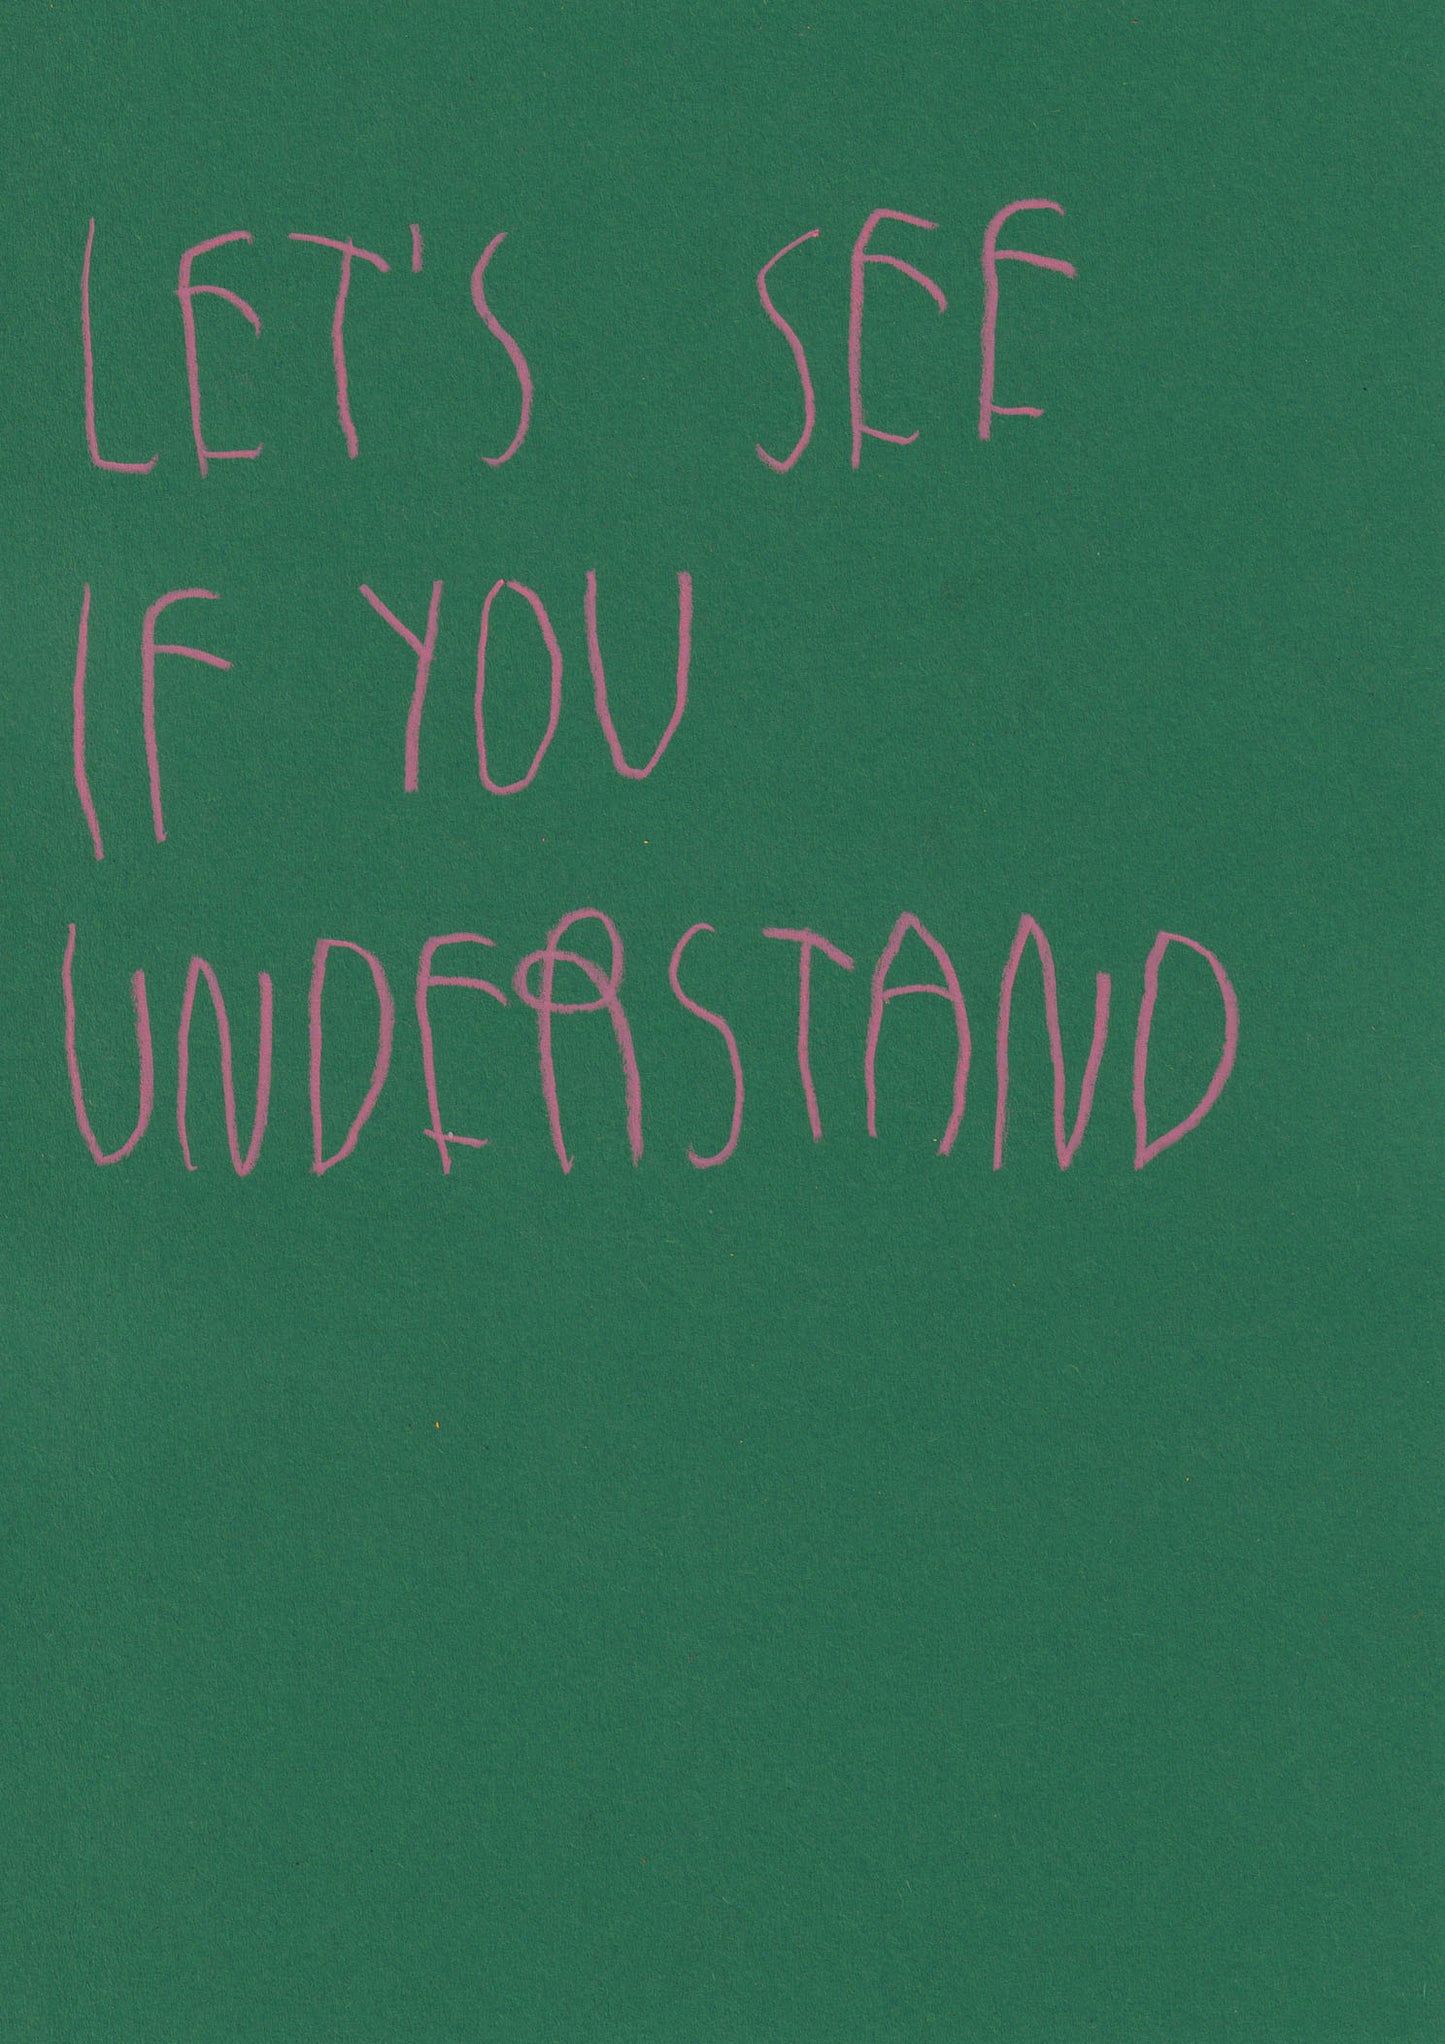 LET'S SEE
IF YOU
UNDERSTAND